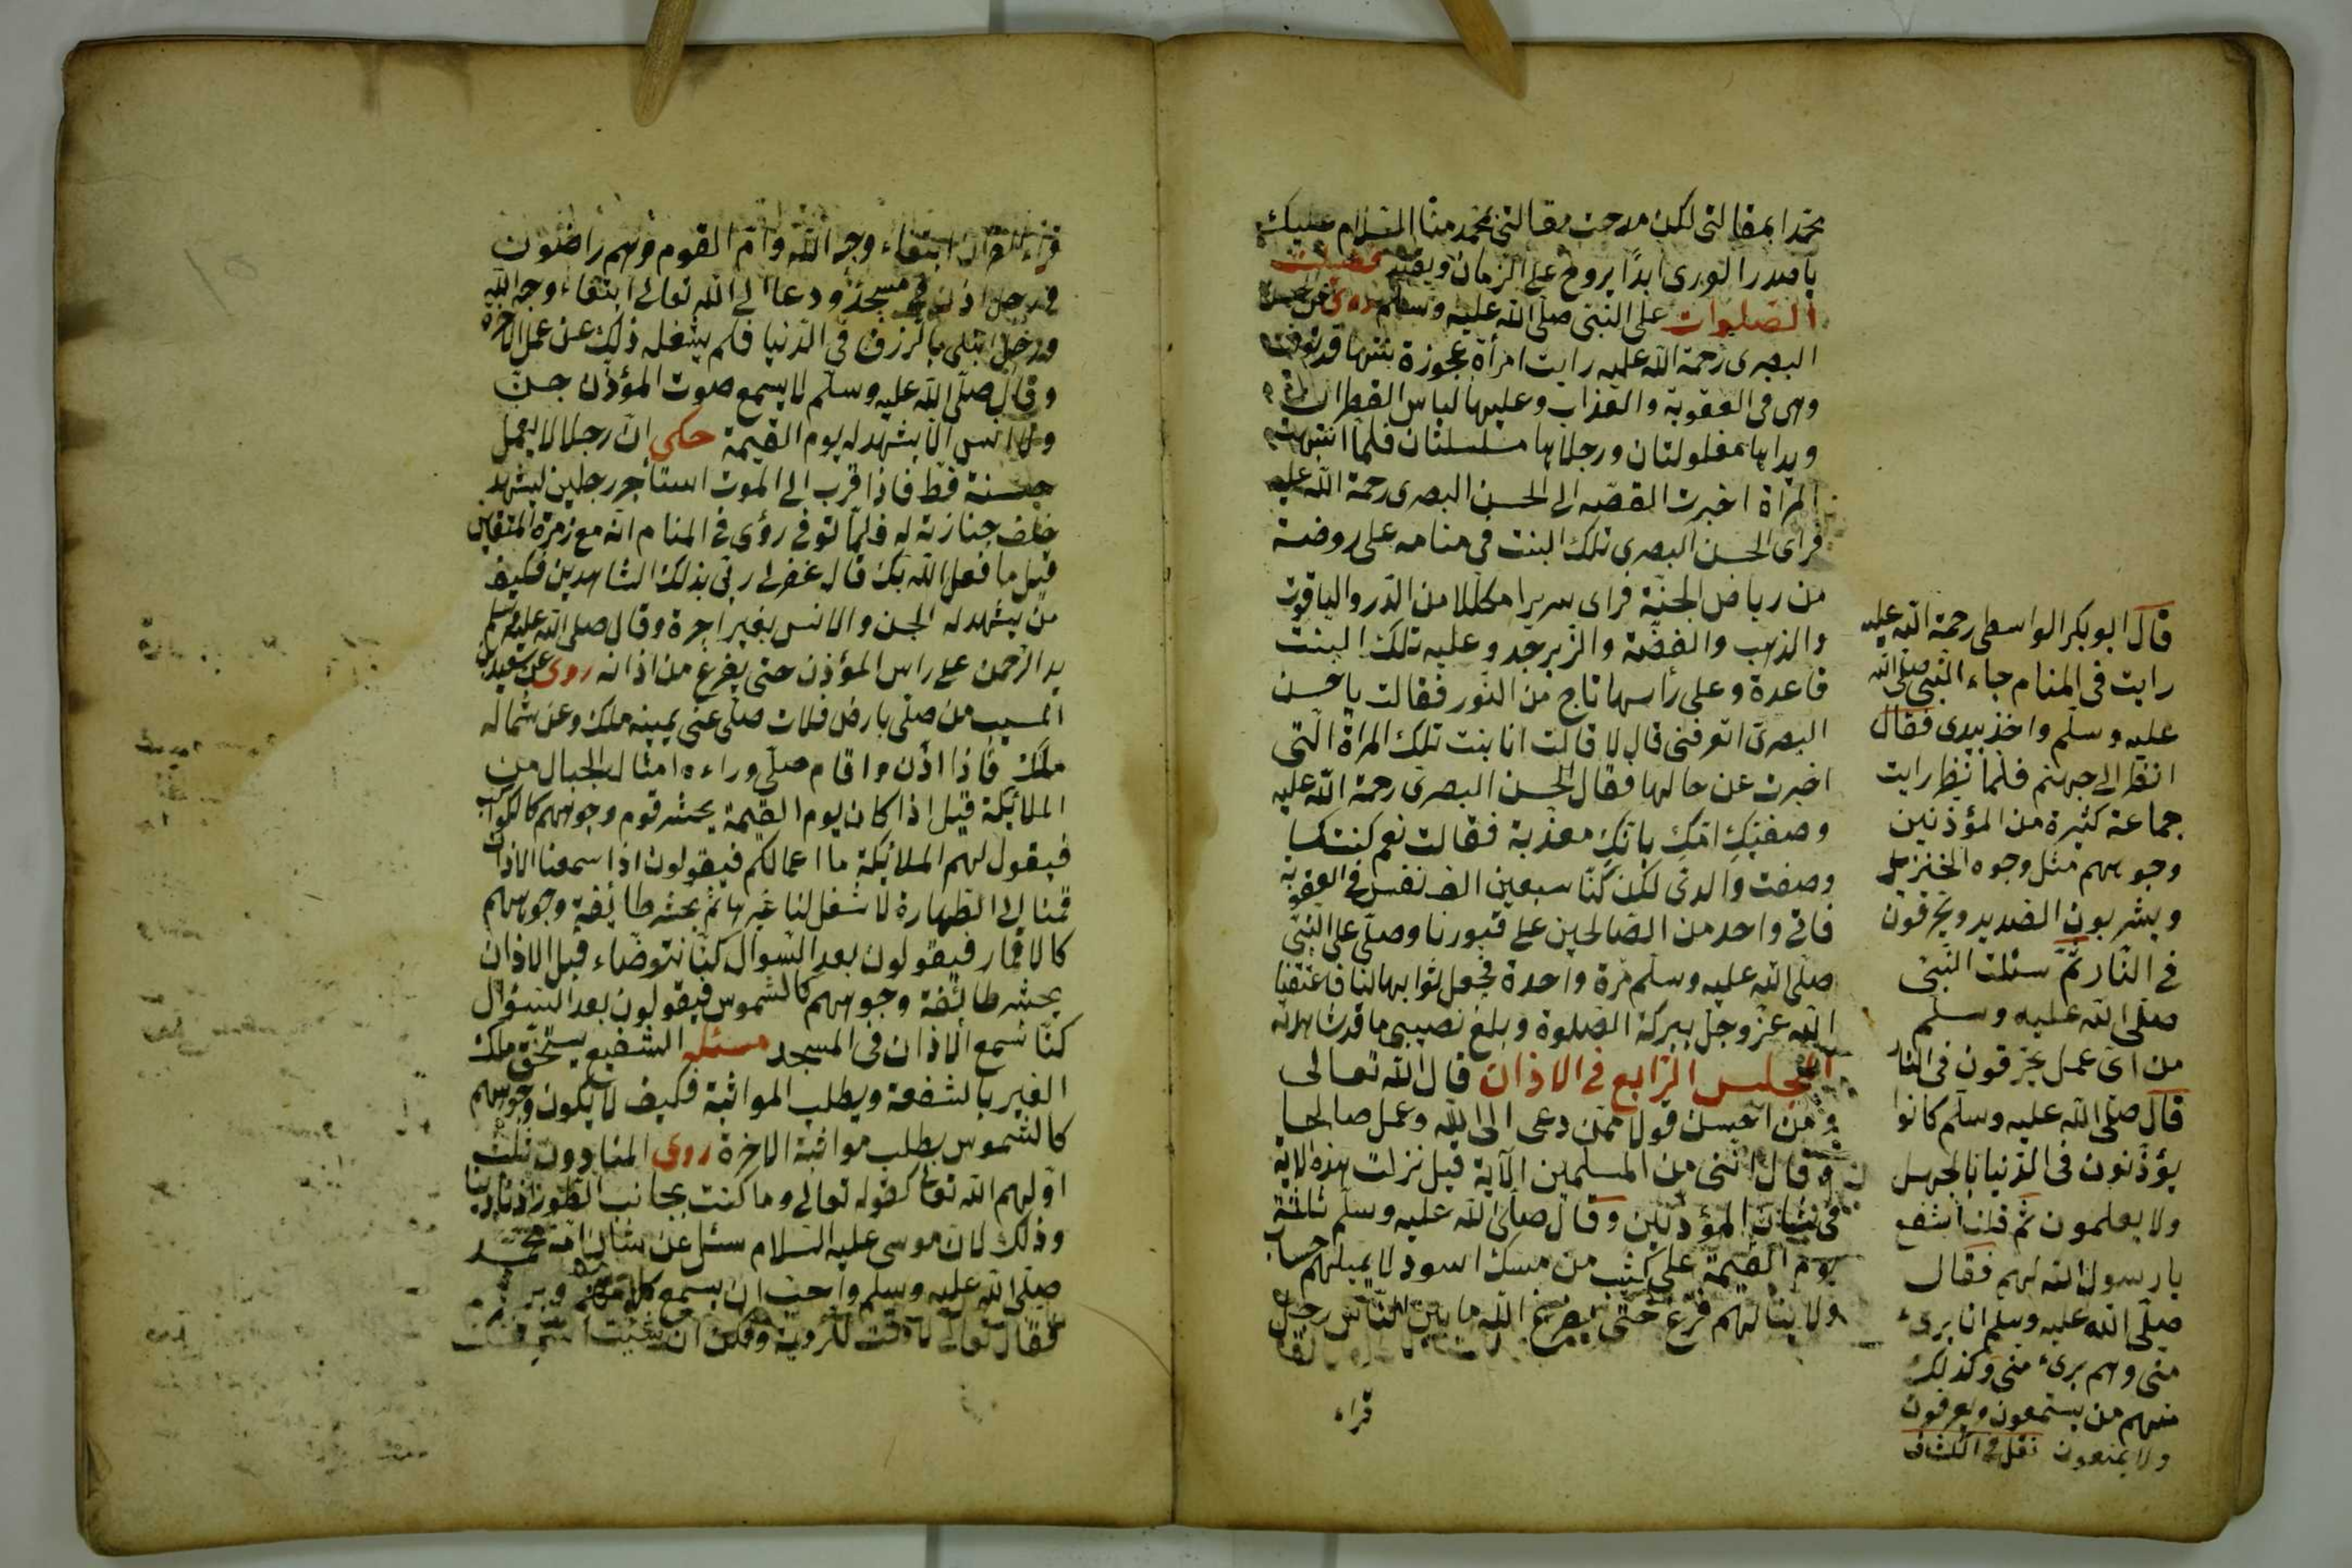 محمدا بمقالتى لكن مدحت مقالتى بمحمد منا السلام عليك
يا صدر الورى ابدًا يروح على الزمان ويفتد فضيلت
الصلوات على النبى صلى الله عليه وسلم روى عن حسن
البصرى رحمة الله عليه رايت امرأة عجوزة بنتها قد توفت
وهى فى العقوبة والعذاب وعليها لباس القطران
ويداها مغلولتان ورجلاها مسلسلتان فلما انتبهت
المرأة اخبرت القصه الى الحسن البصرى رحمة الله عليه
فرأى الحسن البصرى تلك البنت فى منامه على روضة
من رياض الجنة فراى سريرا مكللا من الدر والياقوت
والذهب والفضة والزبرجد وعليه تلك البنت
قاعدة وعلى رأسها تاج من النور فقالت يا حسن
البصرى اتعرفنى قال لا قالت انا بنت تلك المرأة التى
اخبرت عن حالها فقال الحسن البصرى رحمة الله عليه
وصفتك امك بانك معذبة فقالت نعم كنت كما
وصفت والدتى لكن كنا سبعين الف نفس فى العقوبة
فاتى واحد من الصالحين على قبورنا وصلى على النبى
صلى الله عليه وسلم مرة واحدة فجعل ثوابها لنا فاعتقنا
الله عز وجل ببركة الصلوة وبلغ نصيبى ما قد شاهدته
المجلس الرابع فى الاذان قال الله تعالى
ومن احسن قولا ممن دعى الى الله وعمل صالحا
وقال اننى من المسلمين الآية قيل نزلت هذه الاية
فى شان المؤذنين وقال صلى الله عليه وسلم ثلثة
يوم القيمة على كثيب من مسك اسود لا يهيلهم حساب
ولا ينالهم فزع حتى يفرغ الله ما بين الناس رجل
قراء
قال ابو بكر الواسطى رحمة الله عليه
رايت فى المنام جاء النبى صلى الله
عليه وسلم واخذ بيدى فقال
انظر الى جهنم فلما نظر رايت
جماعة كثيرة من المؤذنين
وجوههم مثل وجوه الخنزير
ويشربون الصديد ويحرقون
فى النار ثم سئلت النبى
صلى الله عليه وسلم
من اى عمل يحرقون فى النار
قال صلى الله عليه وسلم كانوا
يؤذنون فى الدنيا بالجهل
ولا يعلمون ثم قلت اشفع
يا رسول الله لهم فقال
صلى الله عليه وسلم انا برىء
منى وهم برىء منى وكذلك
منهم من يستمعون ويعرفون
ولا يمنعون نقل فى الكشاف
قراء القران ابتغاء وجه الله وام القوم وهم راضون
فى رجل اذن فى مسجد ودعا الى الله تعالى ابتغاء وجه الله
ورجل ابتلى بالرزق فى الدنيا فلم يشغله ذلك عن عمل الاخرة
وقال صلى الله عليه وسلم لا يسمع صوت المؤذن جن
ولا انس الا يشهد له يوم القيمة حكى ان رجلا لا يعمل
حسنة قط فاذا قرب الى الموت استأجر رجلين ليشهد
خلف جنازته له فلما توفى رؤى فى المنام انه مع زمرة المتقين
قيل ما فعل الله بك قال غفر لى ربى بذلك الشاهدين فكيف
من يشهد له الجن والانس بغير اجرة وقال صلى الله عليه وسلم
يد الرحمن على راس المؤذن حتى يفرغ من اذانه روى عن سعيد بن
المسيب من صلى بارض فلات صلى عنى يمينه ملك وعن شماله
ملك فاذا اذن واقام صلى وراءه امثال الجبال من
الملائكة قيل اذا كان يوم القيمة يحشر قوم وجوههم كالكواكب
فيقول لهم الملائكة ما اعمالكم فيقولون اذا سمعنا الاذان
قمنا الى الطهارة لا شغل لنا غيرها ثم يحشر طائفة وجوههم
كالاقمار فيقولون بعد السوال كنا نتوضاء قبل الاذان
يحشر طائفة وجوههم كالشموس فيقولون بعد السئوال
كنا نسمع الاذان فى المسجد مسئله الشفيع يستحق ملك
الغير بالشفعة ويطلب المواثبة فكيف لا يكون وجوههم
كالشموس بطلب مواثبة الاخرة روى المنادون ثلث
اولهم الله تعالى كقوله تعالى وما كنت بجانب الطور اذ نادينا
وذلك لان موسى عليه السلام سئل عن شان امة محمد
صلى الله عليه وسلم واحب ان يسمع كلامهم
فقال تعالى لا وقت للروية ولكن ان شئت